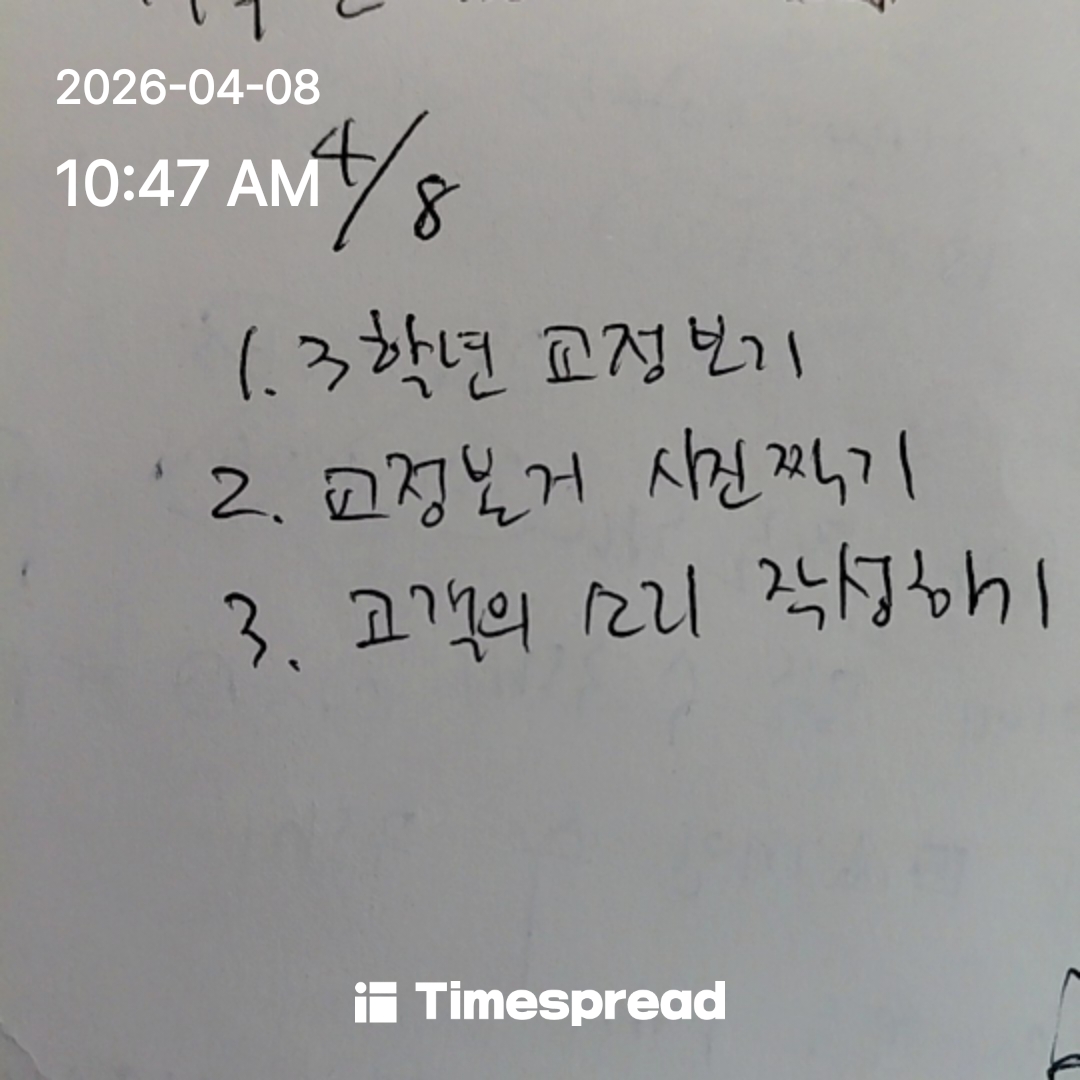 2026-04-08
10:47 AM
4/8
1. 3학년 교정보기
2. 교정본거 사진찍기
3. 고객의 소리 작성하기
Timespread